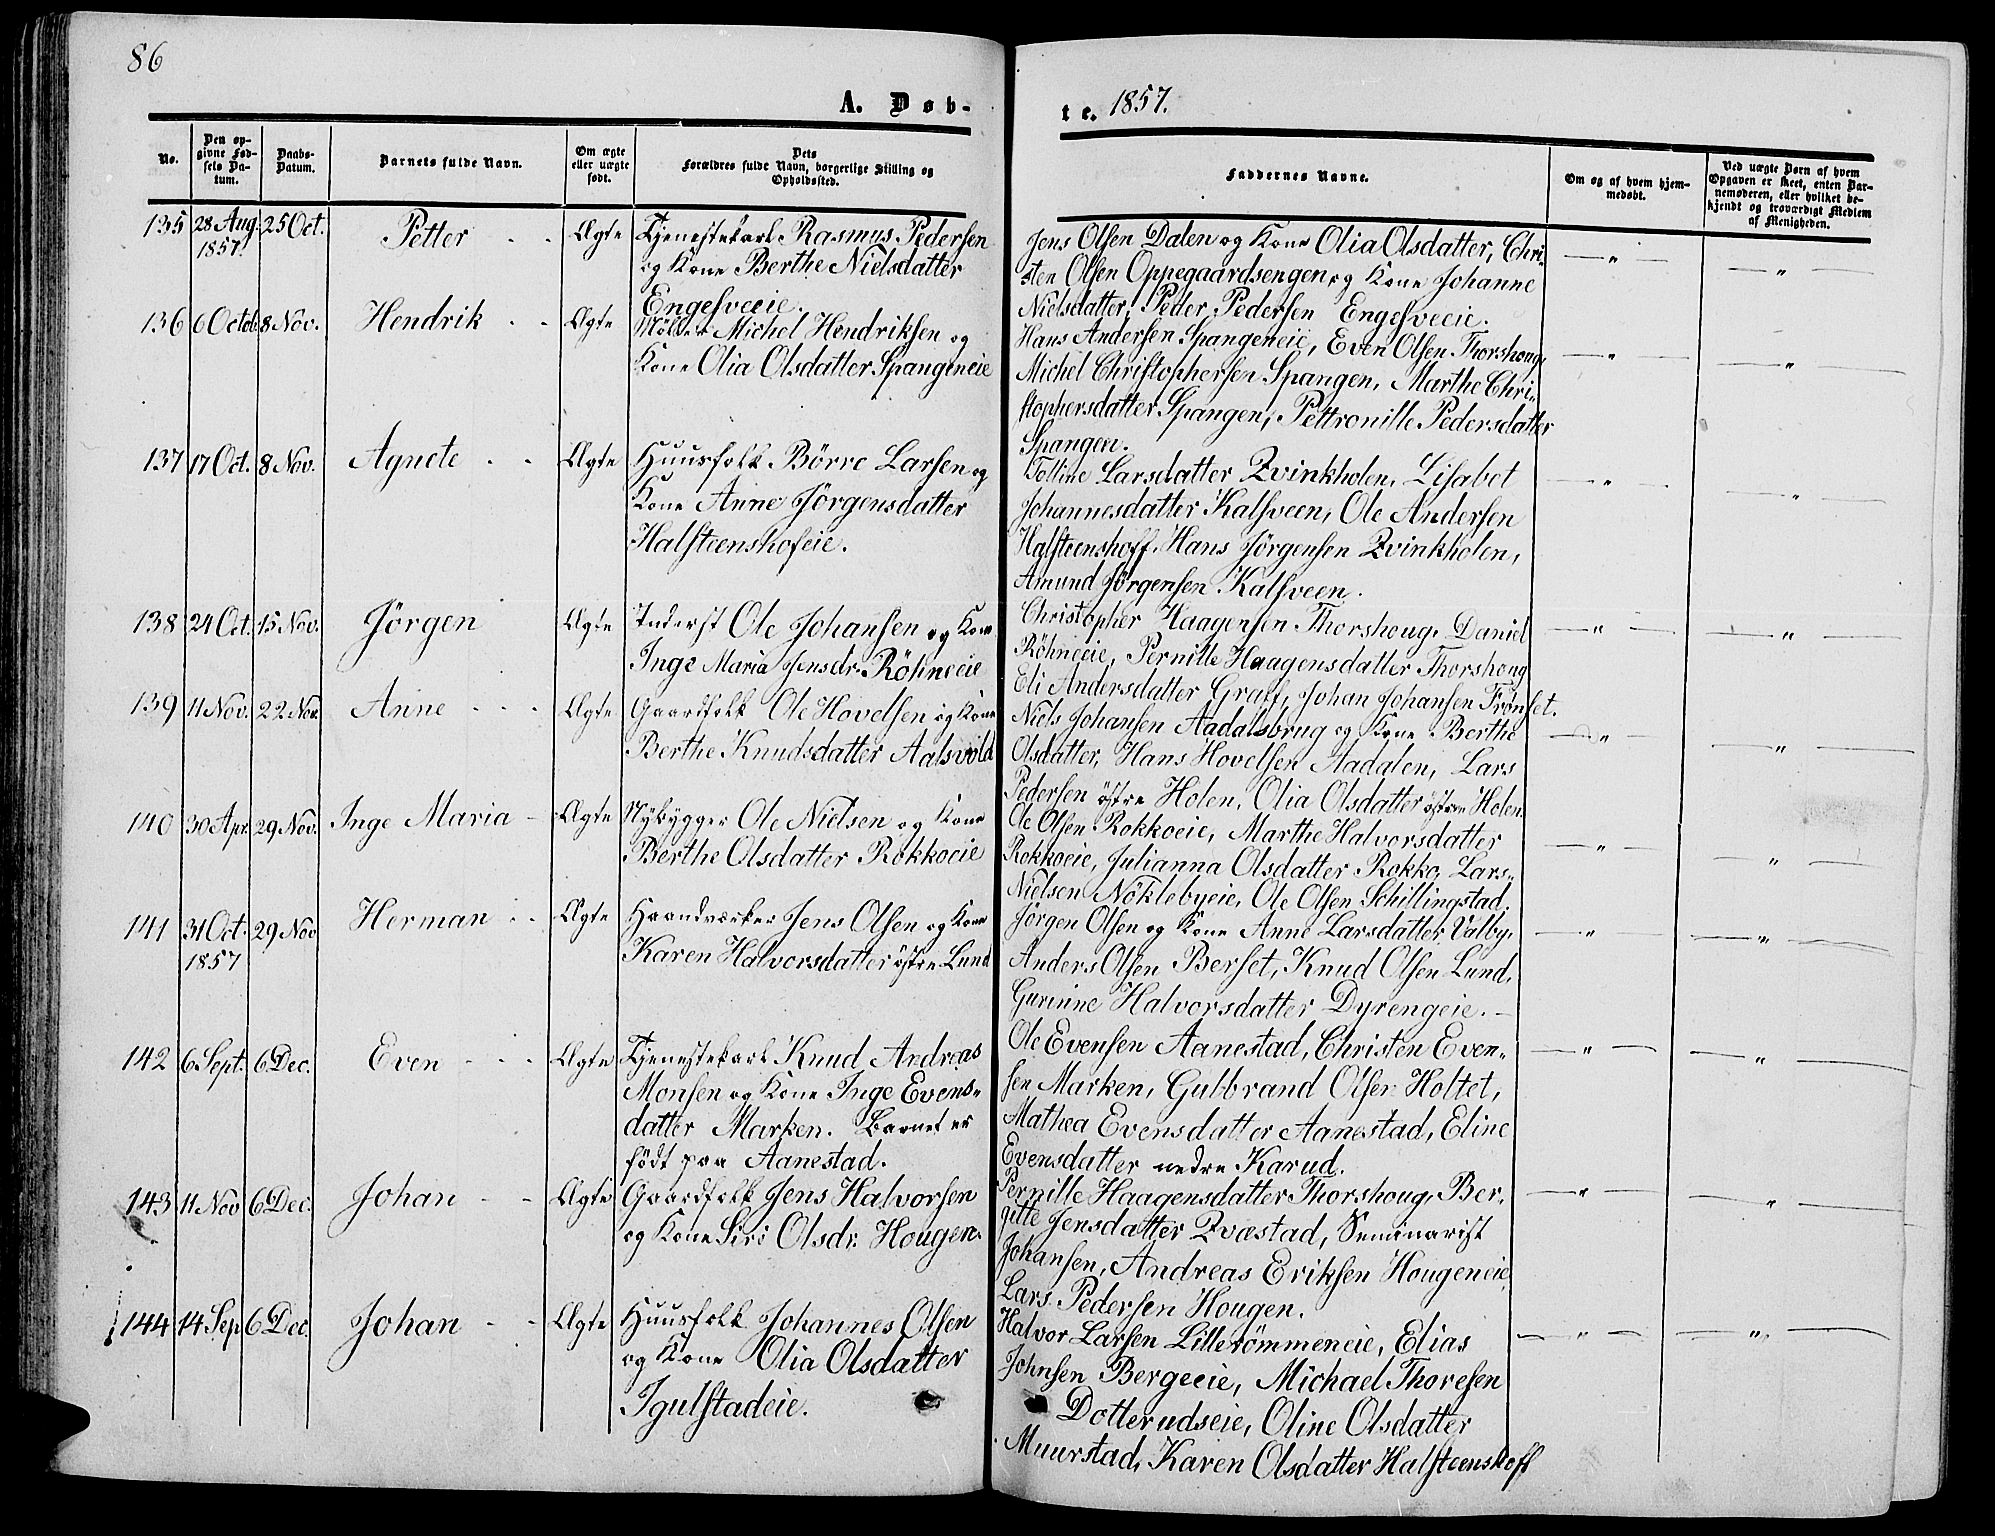 86
A. Døb-
te. 1857.
No.
Den op-
givne Fød-
sels Da-
tum.
Daabs-
Datum.
Barnets fulde Navn.
Om ægte
eller uægte
født.
Dets
Forældres fulde Navn, borgerlige Stilling og
Opholdssted.
Faddernes Navne.
Om og af hvem hjem-
medøbt.
Ved uægte Børn af hvem
Opgaven er skeet, enten Bar-
nemoderen, eller hvilket be-
kjendt og troværdigt Medlem
af Menigheden.
135 28 Aug. 1857. 25 Oct. Petter - - Ægte
Tjenestekarl Rasmus Pedersen
og Kone Berthe Nielsdatter
Engesveeie.
Jens Olsen Dalen og Kone Olia Olsdatter, Chri-
sten Olsen Oppegaardsengen og Kone Johanne
Nielsdatter, Peder Pedersen Engesveeie.
136 6 Octob. 8 Nov. Hendrik - - Ægte
Møller Michel Hendriksen og
Kone Olia Olsdatter Spangeneie
Hans Andersen Spangeneie, Even Olsen Thorshoug,
Michel Christophersen Spangen, Marthe Chri-
stophersdatter Spangen, Pettronille Pedersdatter
Spangen.
137 17 Oct. 8 Nov. Agnete - - Ægte
Huusfolk Börre Larsen og
Kone Anne Jörgensdatter
Halsteenshofeie.
Toline Larsdatter Qvinkholen, Lisabet
Johannesdatter Kalsveen, Ole Andersen
Halsteenshoff, Hans Jörgensen Qvinkholen,
Amund Jörgensen Kalsveen.
138 24 Oct. 15 Nov. Jörgen Ægte
Inderst Ole Johansen og Kone
Inge Maria Jensdr. Röhneeie
Christopher Haagensen Thorshoug, Daniel
Röhneeie, Pernille Haagensdatter Thorshoug
Eli Andersdatter Graff, Johan Johansen Frönset.
139 11 Nov. 22 Nov. Anne - - - Ægte
Gaardfolk Ole Hovelsen og Kone
Berthe Knudsdatter Aalsvold
Niels Johansen Aadalsbrug og Kone Berthe
Olsdatter, Hans Hovelsen Aadalen, Lars
Pedersen östre Holen, Olia Olsdatter östre Holen.
140 30 Apr. 29 Nov. Inge Maria - Ægte
Nybygger Ole Nielsen og Kone
Berthe Olsdatter Rokkoeie
Ole Olsen Rokkoeie, Marthe Halvorsdatter
Rokkoeie, Julianna Olsdatter Rokko, Lars
Nielsen Nöklebyeie, Ole Olsen Schillingstad.
141 31 Oct. 1857 29 Nov Herman - - Ægte
Haandværker Jens Olsen og Kone
Karen Halvorsdatter östre Lund
Jörgen Olsen og Kone Anne Larsdatter Valby,
Anders Olsen Berset, Knud Olsen Lund,
Gurinne Halvorsdatter Dyrengeie.-
142 6 Sept. 6 Dec. Even - - - Ægte
Tjenestekarl Knud Andreas
Monsen og Kone Inge Evens-
datter Marken. Barnet er
födt paa Aanestad.
Ole Evensen Aanestad, Christen Even-
sen Marken, Gulbrand Olsen Holtet,
Mathea Evensdatter Aanestad, Eline
Evensdatter nedre Karud.
143 11 Nov 6 Dec. Johan - - Ægte
Gaardfolk Jens Halvorsen
og Kone Siri Olsdr. Hougen.
Pernille Haagensdatter Thorshoug, Ber-
gitte Jensdatter Qvæstad, Seminarist
Johansen, Andreas Eriksen Hougeneie,
Lars Pedersen Hougen.
144 14 Sep 6 Dec. Johan - - Ægte
Huusfolk Johannes Olsen
og Kone Olia Olsdatter
Igulstadeie.
Halvor Larsen Lilleömmeneie, Elias
Johnsen Bergeeie, Michael Thoresen
Dotterudseie, Oline Olsdatter
Muurstad, Karen Olsdatter Halsteenshoff